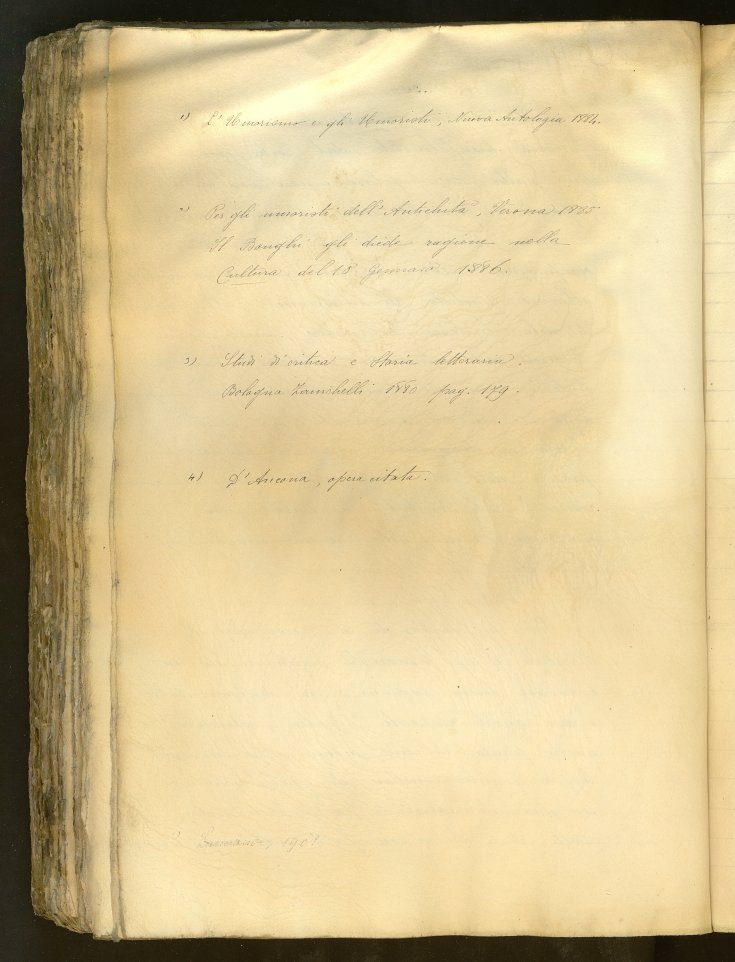 1) L'Umorismo e gli Umoristi, Nuova Antologia 1884.
2) Per gli umoristi dell'Antichità, Verona 1885
Il Bonghi gli diede ragione nella
Cultura del 15 Gennaio 1886.
3) Studi di critica e Storia letteraria.
Bologna Zanichelli 1880 pag. 179.
4) D'Ancona, opera citata.